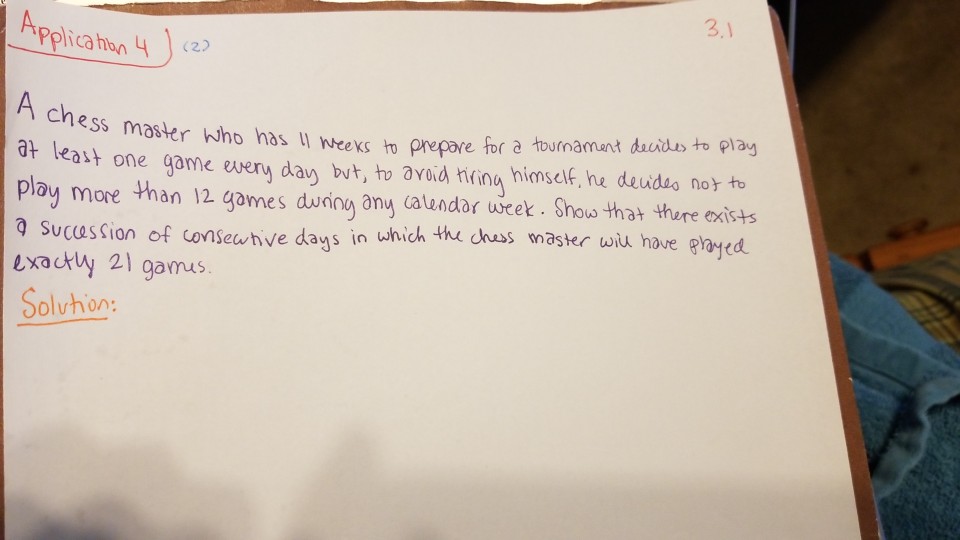 Application 4 (2)
3.1
A chess master who has 11 weeks to prepare for a tournament decides to play
at least one game every day but, to avoid tiring himself, he decides not to
play more than 12 games during any calendar week. Show that there exists
a succession of consecutive days in which the chess master will have played
exactly 21 games.
Solution: